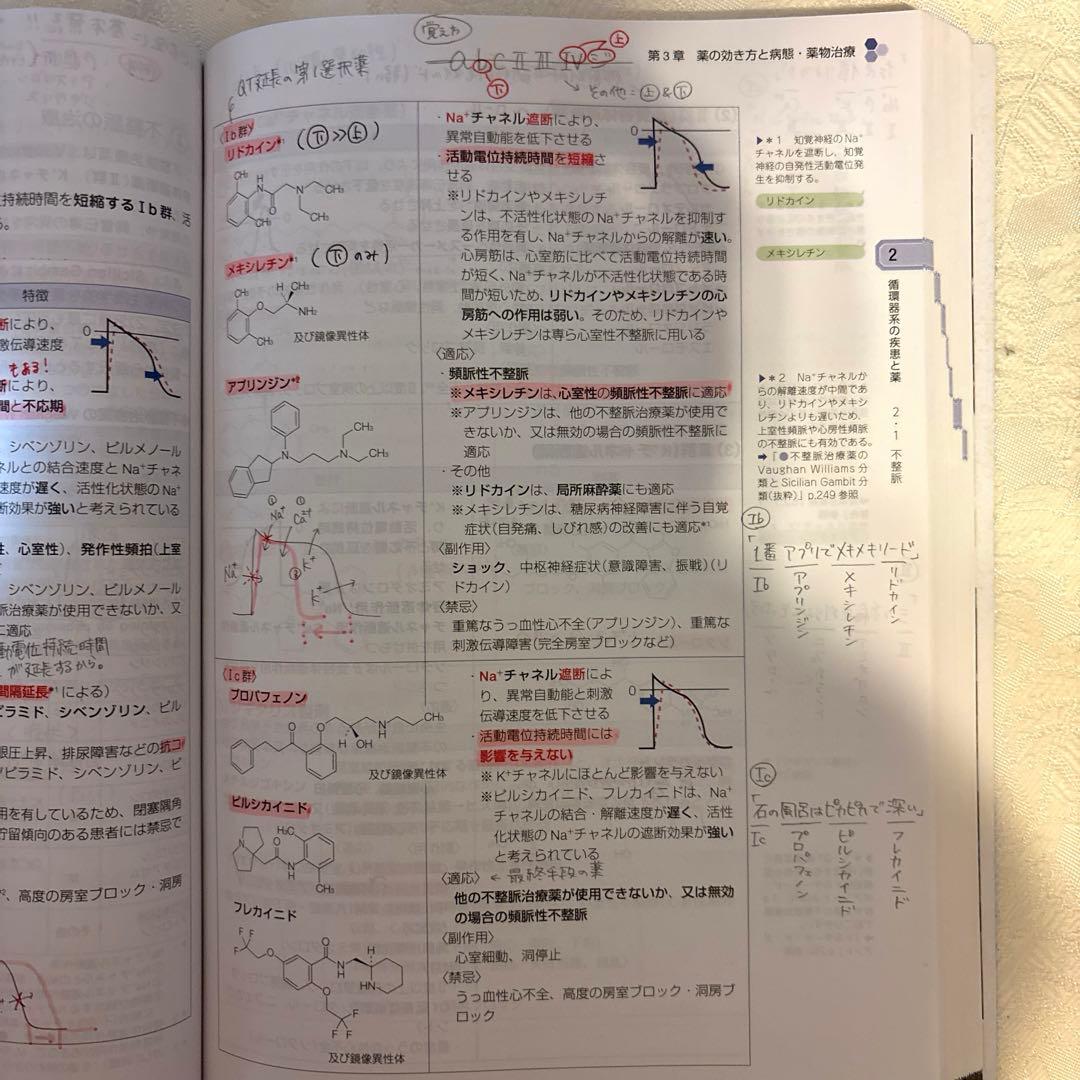 覚え方
a b c Ⅱ Ⅲ Ⅳ ジ 上
下
その他=上&下
第3章 薬の効き方と病態・薬物治療
QT延長の第1選択薬
持続時間を短縮するⅠb群、活
る。
特徴
断により、
激伝導速度
もある!
断により、
間と不応期
シベンゾリン、ピルメノール
ネルとの結合速度とNa⁺チャネ
速度が遅く、活性化状態のNa⁺
断効果が強いと考えられている
性、心室性)、発作性頻拍(上室
シベンゾリン、ピルメノール
治療薬が使用できないか、又
に適応
動電位持続時間
が延長するから。
間隔延長*¹による)
ピラミド、シベンゾリン、ピル
眼圧上昇、排尿障害などの抗コ
ピラミド、シベンゾリン、ピ
用を有しているため、閉塞隅角
貯留傾向のある患者には禁忌で
、高度の房室ブロック・洞房
〈Ⅰb群〉
リドカイン*¹ (下≫上)
CH₃
H
N
O
CH₃
N
CH₃
CH₃
メキシレチン*¹ (下のみ)
CH₃
H CH₃
O
NH₂
CH₃
及び鏡像異性体
アプリンジン*²
N
N
CH₃
CH₃
① Na⁺
② Ca²⁺
Na⁺
K⁺
③
K⁺
・Na⁺チャネル遮断により、
異常自動能を低下させる
・活動電位持続時間を短縮さ
せる
0
※リドカインやメキシレチ
ンは、不活性化状態のNa⁺チャネルを抑制す
る作用を有し、Na⁺チャネルからの解離が速い。
心房筋は、心室筋に比べて活動電位持続時間
が短く、Na⁺チャネルが不活性化状態である時
間が短いため、リドカインやメキシレチンの心
房筋への作用は弱い。そのため、リドカインや
メキシレチンは専ら心室性不整脈に用いる
〈適応〉
・頻脈性不整脈
※メキシレチンは、心室性の頻脈性不整脈に適応
※アプリンジンは、他の不整脈治療薬が使用で
きないか、又は無効の場合の頻脈性不整脈に
適応
・その他
※リドカインは、局所麻酔薬にも適応
※メキシレチンは、糖尿病神経障害に伴う自覚
症状(自発痛、しびれ感)の改善にも適応*¹
〈副作用〉
ショック、中枢神経症状(意識障害、振戦)(リ
ドカイン)
〈禁忌〉
重篤なうっ血性心不全(アプリンジン)、重篤な
刺激伝導障害(完全房室ブロックなど)
〈Ⅰc群〉
プロパフェノン
O
O
H OH
N
H
CH₃
及び鏡像異性体
ピルシカイニド
H₃C
N
O
N
H
CH₃
フレカイニド
F F
F
O
O
N
H
H
HN
O
F
F
F
及び鏡像異性体
・Na⁺チャネル遮断によ
り、異常自動能と刺激
伝導速度を低下させる
・活動電位持続時間には
影響を与えない
0
※K⁺チャネルにほとんど影響を与えない
※ピルシカイニド、フレカイニドは、Na⁺
チャネルの結合・解離速度が遅く、活性
化状態のNa⁺チャネルの遮断効果が強い
と考えられている
〈適応〉 ← 最終手段の薬
他の不整脈治療薬が使用できないか、又は無効
の場合の頻脈性不整脈
〈副作用〉
心室細動、洞停止
〈禁忌〉
うっ血性心不全、高度の房室ブロック・洞房ブ
ロック
▶*1 知覚神経のNa⁺
チャネルを遮断し、知覚
神経の自発性活動電位発
生を抑制する。
リドカイン
メキシレチン
▶*2 Na⁺チャネルか
らの解離速度が中間であ
り、リドカインやメキシ
レチンよりも遅いため、
上室性頻脈や心房性頻脈
の不整脈にも有効である。
➡「●不整脈治療薬の
Vaughan Williams分
類とSicilian Gambit分
類(抜粋)」p.249参照
Ⅰb
「1番アプリでメキメキリード」
Ⅰb
アプリンジン
メキシレチン
リドカイン
Ⅰc
「石の風呂はピカピカで深い」
Ⅰc
プロパフェノン
ピルシカイニド
フレカイニド
2
循環器系の疾患と薬
2・1 不整脈